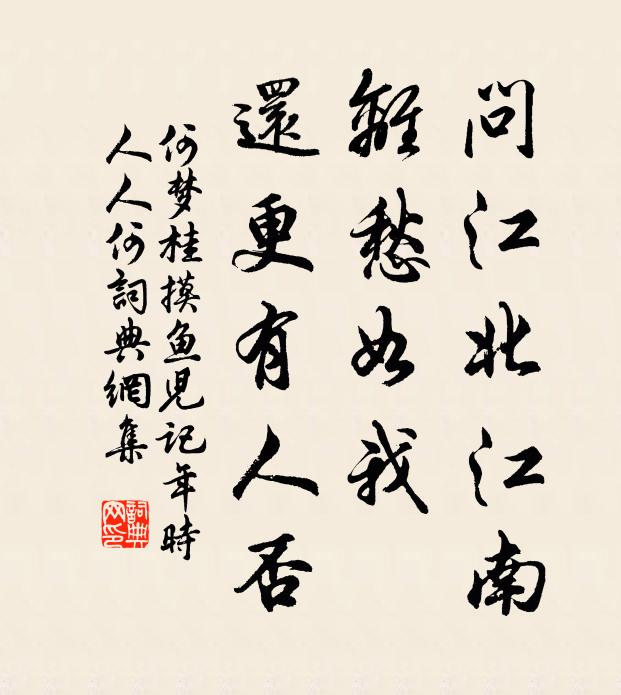 問江北江南
離愁如我
還更有人否
何梦桂摸魚兒記年時
人人何詞典網集
詞典网印